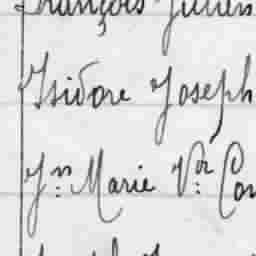 François Julien
Isidore Joseph
Jn Marie Vor Con